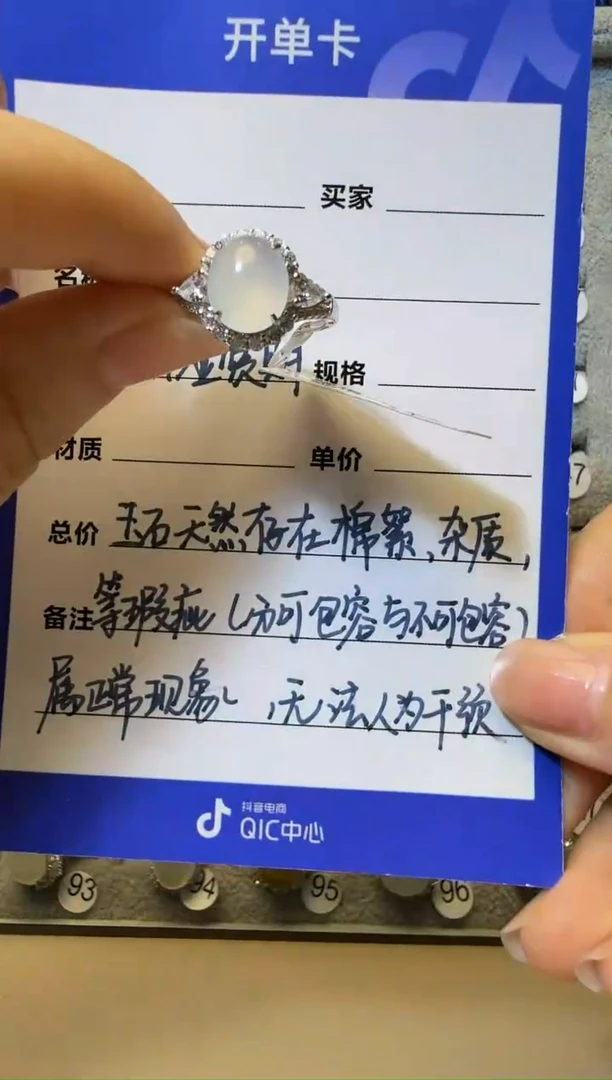 开单卡
买家
名
规格
材质 单价
总价 玉石天然存在棉絮、杂质,
备注 等瑕疵(分可包容与不可包容)
属正常现象,无法人为干预
抖音电商
QIC中心
93 94 95 96
7